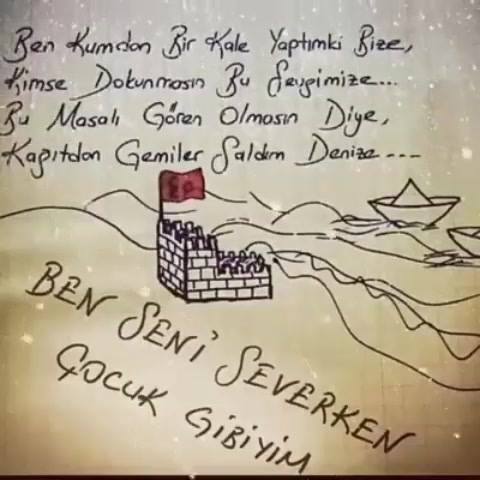 Ben Kumdan Bir Kale Yaptımki Bize,
Kimse Dokunmasın Bu Sevgimize...
Bu Masalı Gören Olmasın Diye,
Kağıtdan Gemiler Saldım Denize...
BEN SENİ SEVERKEN
ÇOCUK GİBİYİM